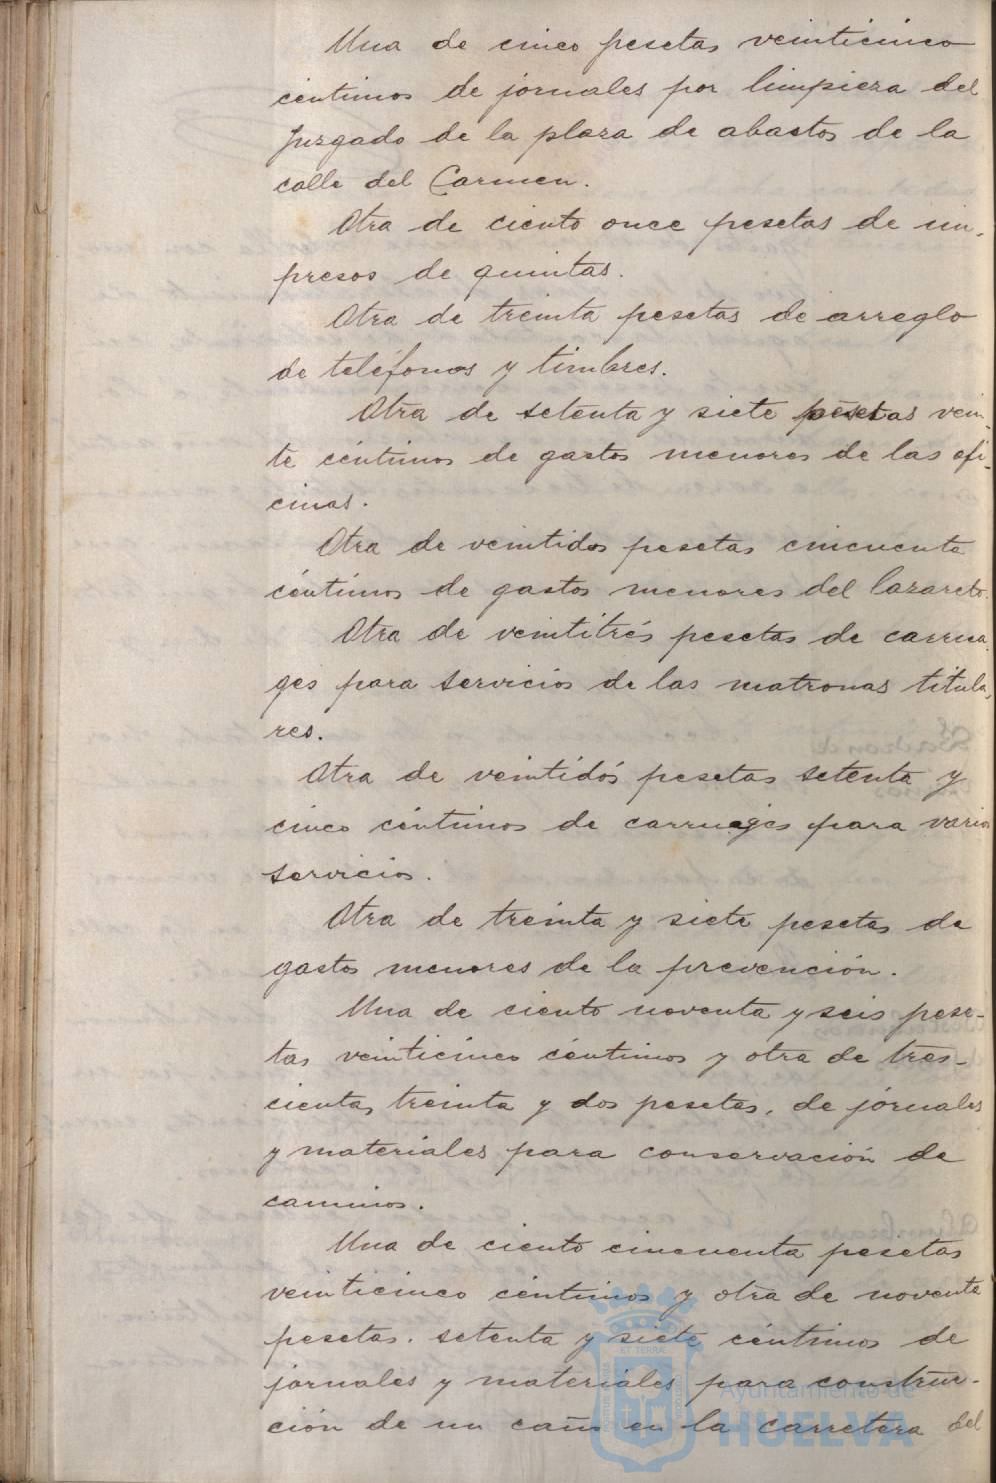 Una de cinco pesetas veinticinco
céntimos de jornales por limpieza del
Juzgado de la plaza de abastos de la
calle del Carmen.
Otra de ciento once pesetas de im-
presos de quintas.
Otra de treinta pesetas de arreglo
de teléfonos y timbres.
Otra de setenta y siete pesetas vein-
te céntimos de gastos menores de las ofi-
cinas.
Otra de veintidos pesetas cincuenta
céntimos de gastos menores del lazareto.
Otra de veintitrés pesetas de carrua-
ges para servicios de las matronas titula-
res.
Otra de veintidós pesetas setenta y
cinco céntimos de carruages para varios
servicios.
Otra de treinta y siete pesetas de
gastos menores de la prevención.
Una de ciento noventa y seis pese-
tas veinticinco céntimos y otra de tres-
cientas treinta y dos pesetas, de jornales
y materiales para conservación de
caminos.
Una de ciento cincuenta pesetas
veinticinco céntimos y otra de noventa
pesetas setenta y siete céntimos de
jornales y materiales para construc-
ción de un caño en la carretera del
Ayuntamiento de
HUELVA